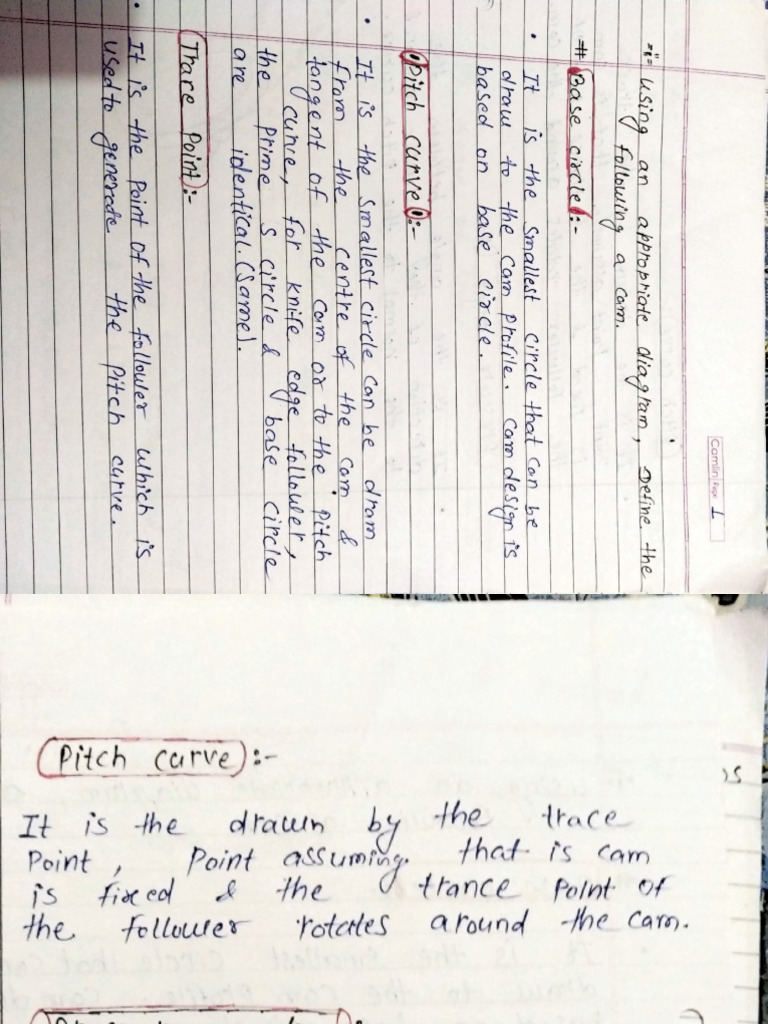 Camlin Page 1
-:- using an appropriate diagram, Define the
following a cam.
# Base circle :-
• It is the smallest circle that can be
draw to the cam profile. cam design is
based on base circle.
Pitch curve :-
• It is the smallest circle can be dram
from the centre of the cam &
tangent of the cam or to the pitch
curve, for knife edge follower,
the prime s circle & base circle
are identical. (same).
Thare Point :-
• It is the Point of the follower which is
used to generade the pitch curve.
Pitch curve :-
It is the drawn by the trace
Point, Point assuming. that is cam
is fixed & the trance Point of
the follower rotates around the cam.